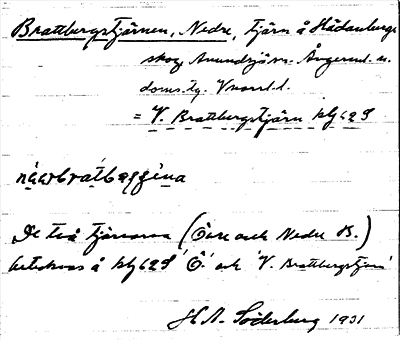 Brattbergstjärnen, Nedre, tjärn å Hädanbergs
skog Anundsjö sn. Ångerml. s.
doms.tg. Vnorrl. l.
= V. Brattbergstjärn blg 62 S
De två tjärnarna (Övre och Nedre B.)
betecknas å blg 62 S 'Ö.' och 'V. Brattbergstjärn'
H. A. Söderberg 1931